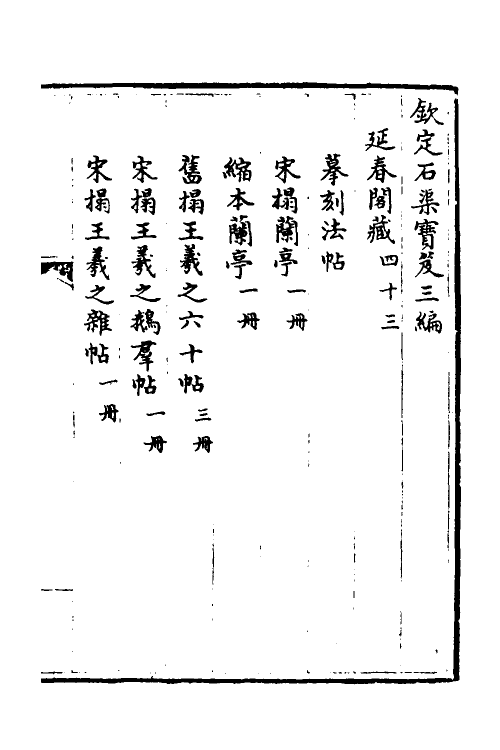 欽定石渠寶笈三編
延春閣藏四十三
摹刻法帖
宋搨蘭亭一冊
縮本蘭亭一冊
舊搨王羲之六十帖三冊
宋搨王羲之鵝羣帖一冊
宋搨王羲之雜帖一冊